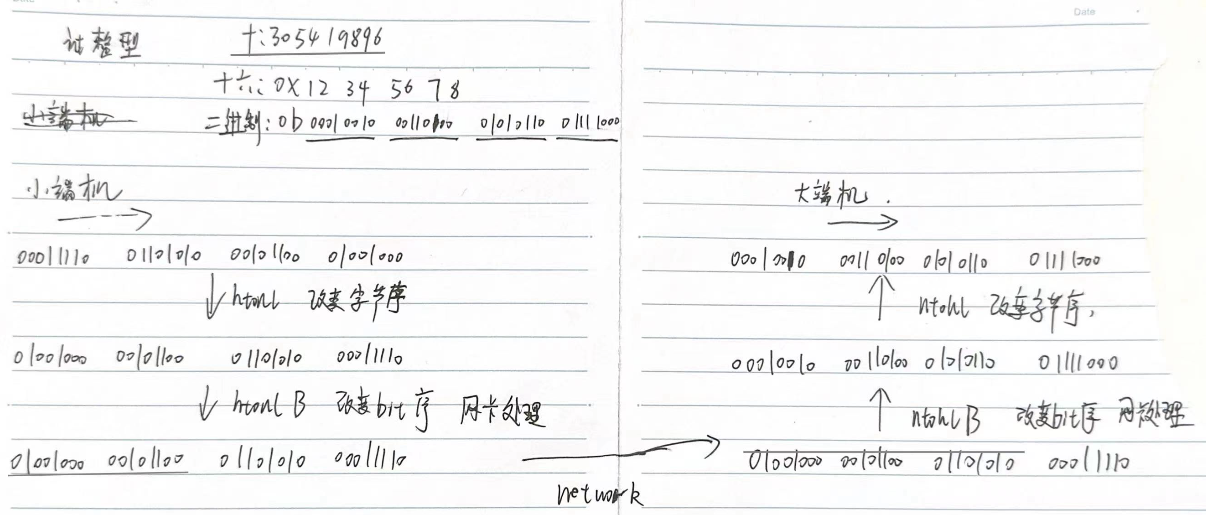 Date
计整型 十:305419896
十六:0X12 34 56 78
小端机 二进制:0b 00010010 00110100 01010110 01111000
小端机
00011110 01101010 00101100 01001000
htonl 改变字节序
01001000 00101100 01101010 00011110
htonl B 改变bit序 网卡处理
01001000 00101100 01101010 00011110
network
Date
大端机.
00010010 00110100 01010110 01111000
ntohl 改变字节序,
00010010 00110100 01010110 01111000
ntohl B 改变bit序 网卡处理
01001000 00101100 01101010 00011110